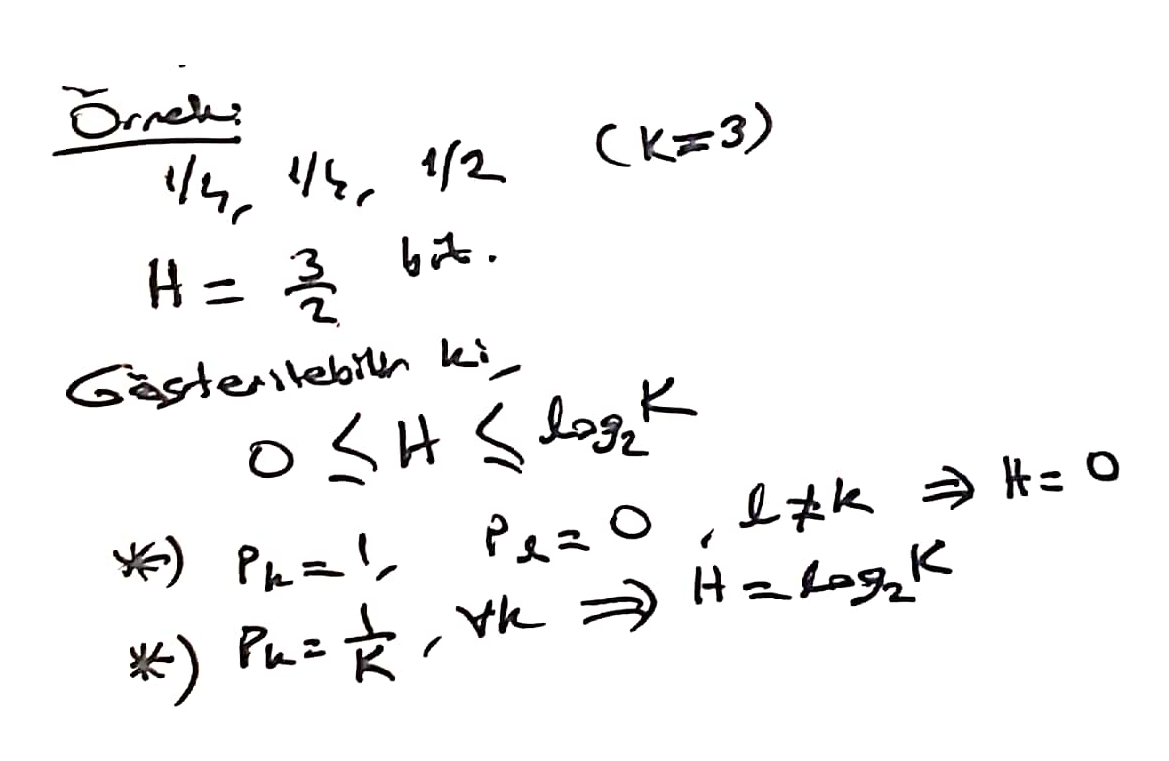 Örnek:
1/4, 1/4, 1/2 (K=3)
H = 3/2 bit.
Gösterilebilir ki,
0 ≤ H ≤ log₂K
*) Pₖ = 1, Pₗ = 0, l ≠ k ⇒ H = 0
*) Pₖ = 1/K, ∀k ⇒ H = log₂K